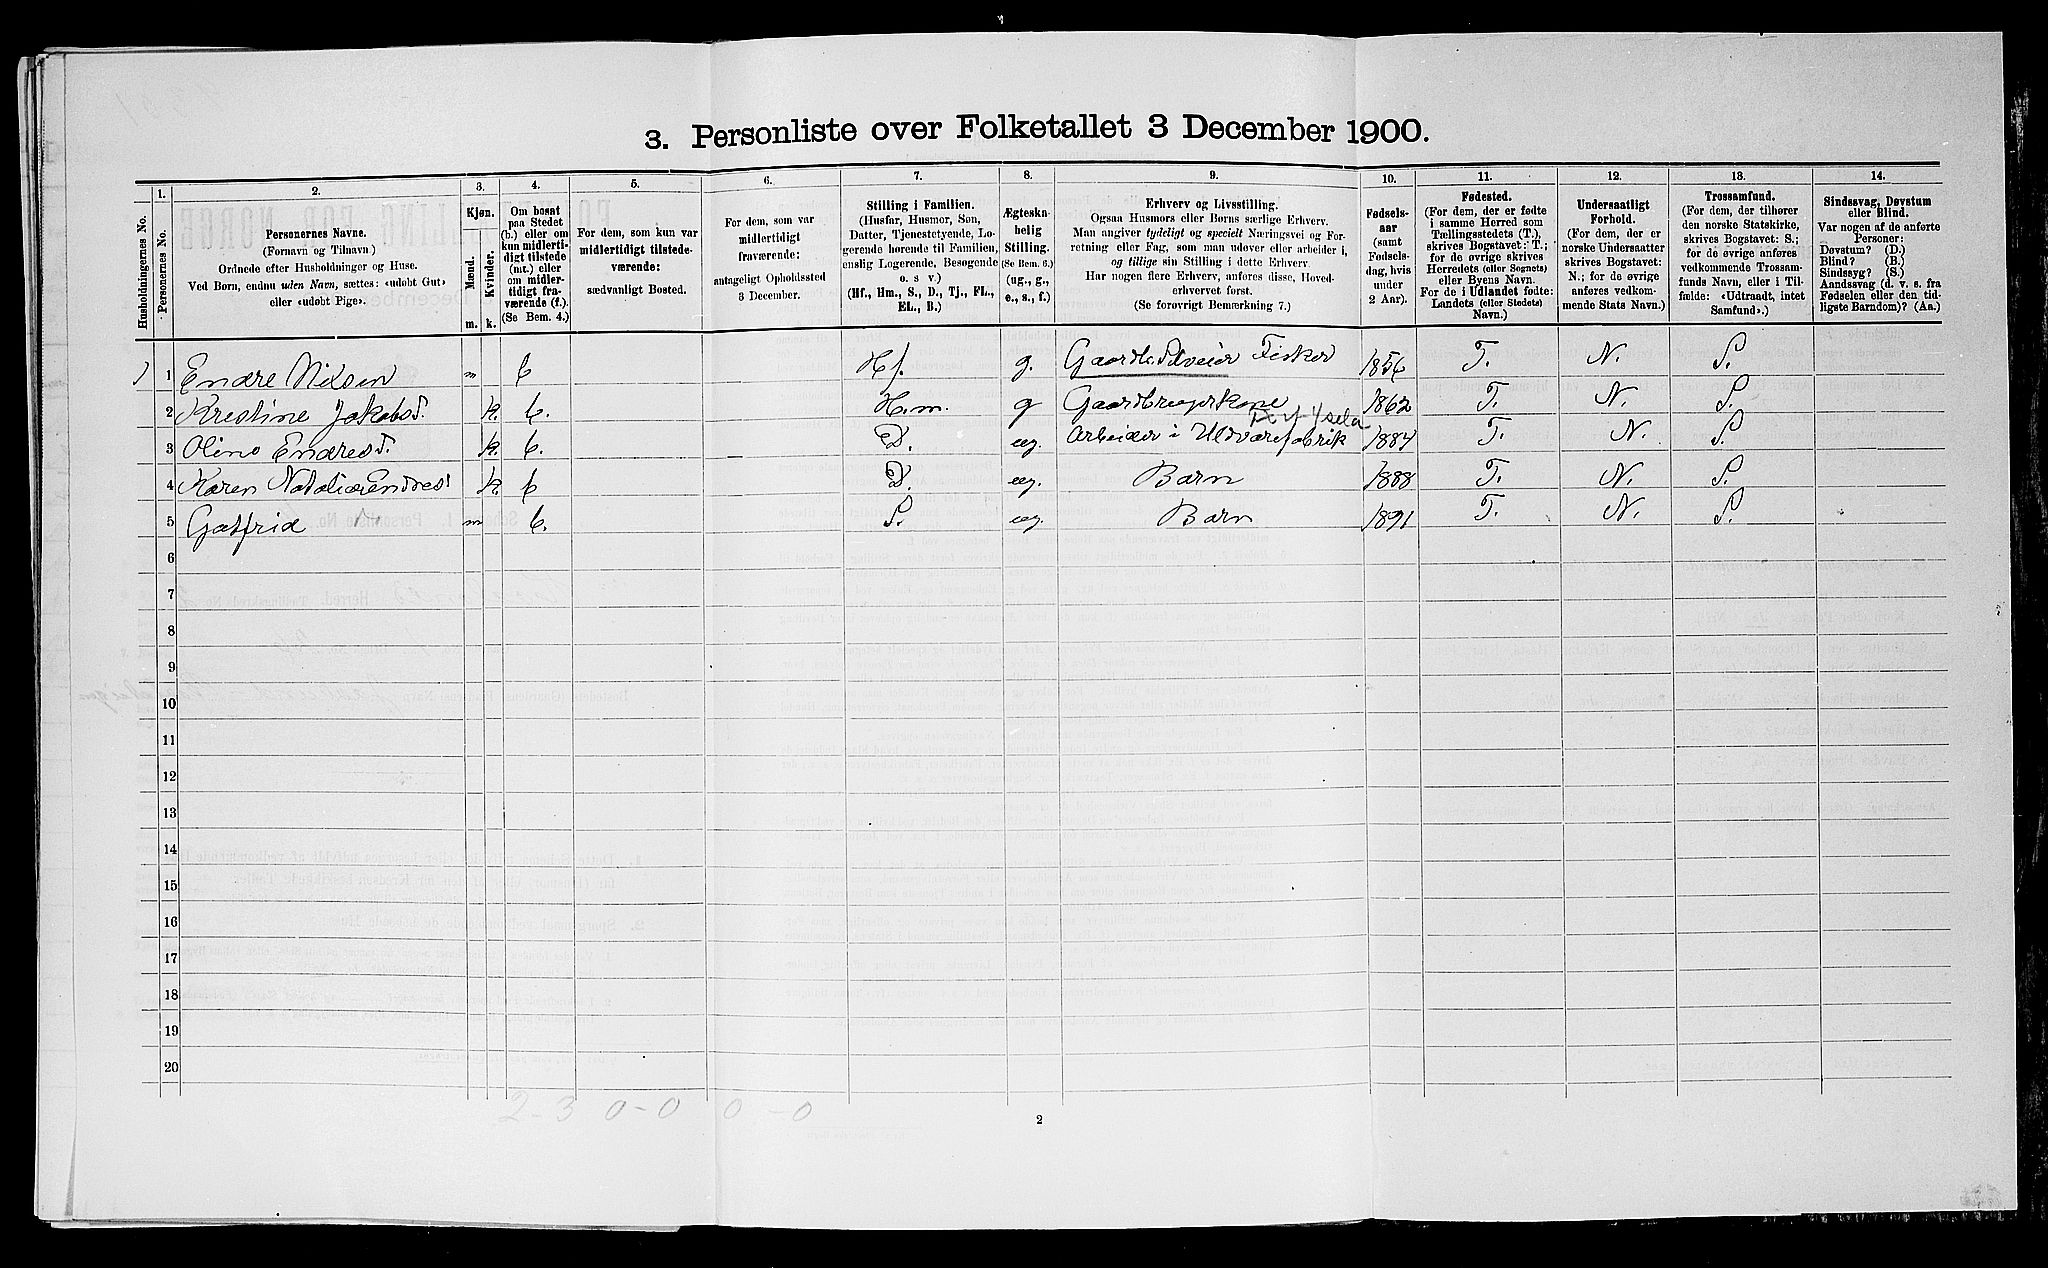 3. Personliste over Folketallet 3 December 1900.
Husholdningernes No.
1.
Personernes No.
2.
Personernes Navne.
(Fornavn og Tilnavn)
Ordnede efter Husholdninger og Huse.
Ved Børn, endnu uden Navn, sættes: «udøbt Gut»
eller «udøbt Pige».
3.
Kjøn.
Mænd.
Kvinder.
m.
k.
4.
Om bosat
paa Stedet
(b.) eller om
kun midlerti-
digt tilstede
(mt.) eller
om midler-
tidigt fra-
værende (f.).
(Se Bem. 4.)
5.
For dem, som kun var
midlertidigt tilstede-
værende:
sædvanligt Bosted.
6.
For dem, som var
midlertidigt
fraværende:
antageligt Opholdssted
3 December.
7.
Stilling i Familien.
(Husfar, Husmor, Søn,
Datter, Tjenestetyende, Lo-
gerende hørende til Familien,
enslig Logerende, Besøgende
o. s. v.)
(Hf., Hm., S., D., Tj., FL.,
EL., B.)
8.
Ægteska-
belig
Stilling.
(Se Bem. 6.)
(ug., g.,
e., s., f.)
9.
Erhverv og Livsstilling.
Ogsaa Husmors eller Børns særlige Erhverv.
Man angiver tydeligt og specielt Næringsvei og For-
retning eller Fag, som man udøver eller arbeider i,
og tillige sin Stilling i dette Erhverv.
Har nogen flere Erhverv, anføres disse, Hoved-
erhvervet først.
(Se forøvrigt Bemærkning 7.)
10.
Fødsels-
aar
(samt
Fødsels-
dag, hvis
under
2 Aar).
11.
Fødested.
(For dem, der er fødte
i samme Herred som
Tællingsstedets (T.),
skrives Bogstavet: T.;
for de øvrige skrives
Herredets (eller Sognets)
eller Byens Navn.
For de i Udlandet fødte:
Landets (eller Stedets)
Navn.)
12.
Undersaatligt
Forhold.
(For dem, der er
norske Undersaatter
skrives Bogstavet:
N.; for de øvrige
anføres vedkom-
mende Stats Navn.)
13.
Trossamfund.
(For dem, der tilhører
den norske Statskirke,
skrives Bogstavet: S.;
for de øvrige anføres
vedkommende Trossam-
funds Navn, eller i Til-
fælde: «Udtraadt, intet
Samfund».)
14.
Sindssvag, Døvstum
eller Blind.
Var nogen af de anførte
Personer:
Døvstum? (D.)
Blind? (B.)
Sindssyg? (S.)
Aandssvag (d. v. s. fra
Fødselen eller den tid-
ligste Barndom)? (Aa.)
1 1 Endre Nilsen m b Hf. g. Gaardb. Selveier Fisker 1856 T. N. S.
2 Kristine Jakobsd. k. b. H.m. g Gaardbrugerkone 1862 T. N. S.
3 Oline Endresd. k. b. D. ug. Arbeider i Uldvarefabrik 1884 T. N. S.
4 Karen Natalia Endresd k. b D. ug. Barn 1888 T. N. S.
5 Gotfrid m b. S. ug. Barn 1891 T. N. S.
6
7
8
9
10
11
12
13
14
15
16
17
18
19
20
2-3 0-0 0-0
2